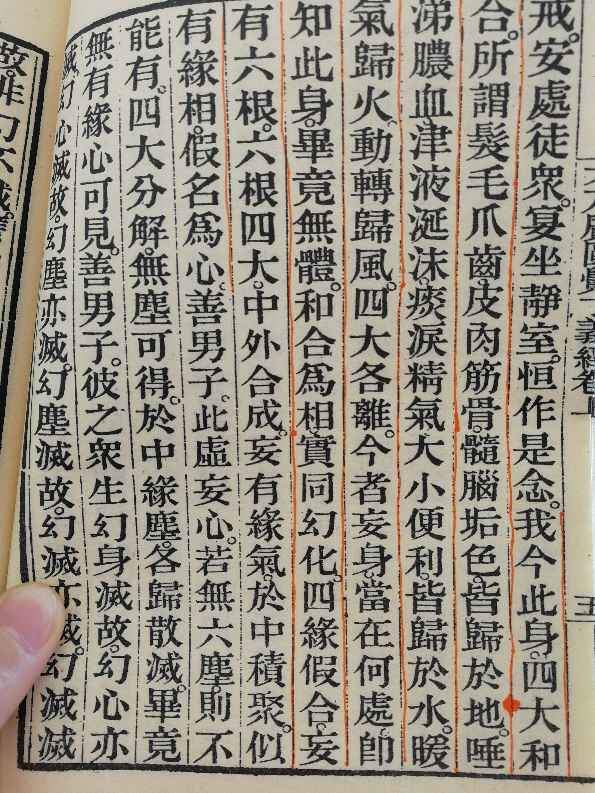 戒。安處徒衆。宴坐靜室。恒作是念。我今此身。四大和
合。所謂髮毛爪齒。皮肉筋骨。髓腦垢色。皆歸於地。唾
涕膿血。津液涎沫。痰淚精氣。大小便利。皆歸於水。暖
氣歸火。動轉歸風。四大各離。今者妄身。當在何處。卽
知此身。畢竟無體。和合爲相。實同幻化。四緣假合。妄
有六根。六根四大。中外合成。妄有緣氣。於中積聚。似
有緣相。假名爲心。善男子。此虛妄心。若無六塵。則不
能有。四大分解。無塵可得。於中緣塵。各歸散滅。畢竟
無有緣心可見。善男子。彼之衆生幻身滅故。幻心亦
滅。幻心滅故。幻塵亦滅。幻塵滅故。幻滅亦滅。幻滅滅
故。非幻不滅。